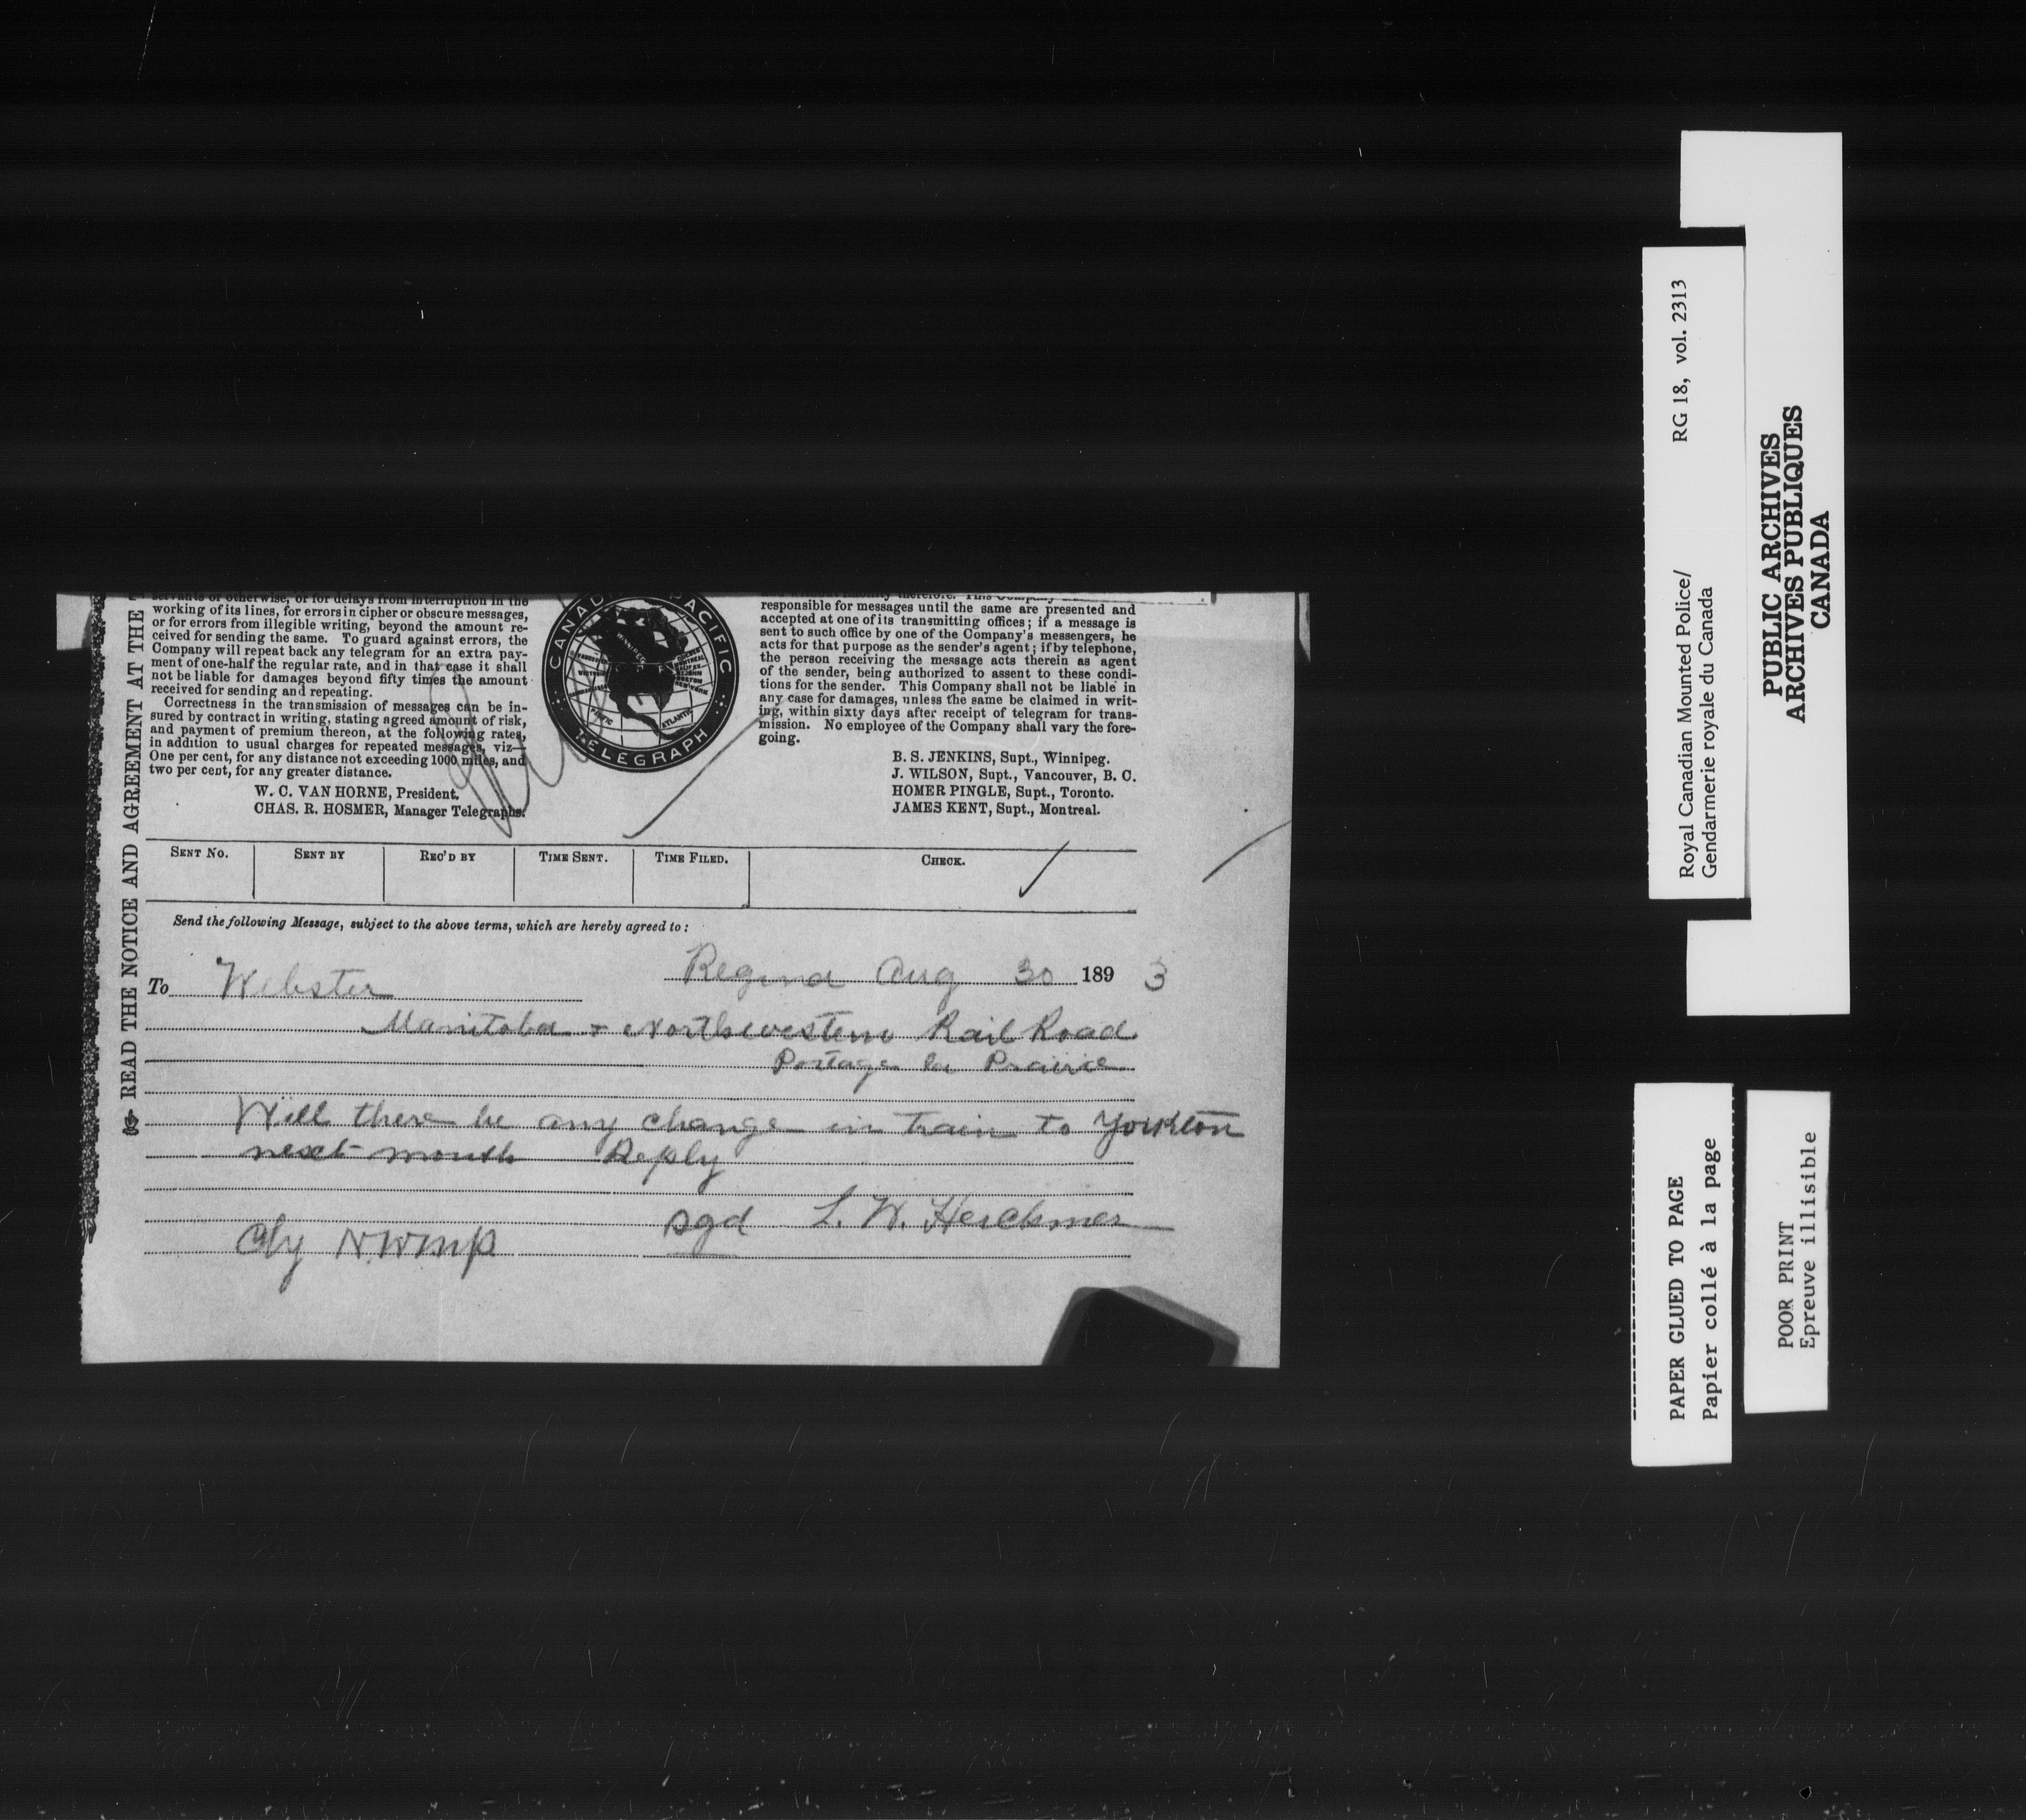 READ THE NOTICE AND AGREEMENT AT THE
servants or otherwise, or for delays from interruption in the
working of its lines, for errors in cipher or obscure messages,
or for errors from illegible writing, beyond the amount re-
ceived for sending the same. To guard against errors, the
Company will repeat back any telegram for an extra pay-
ment of one-half the regular rate, and in that case it shall
not be liable for damages beyond fifty times the amount
received for sending and repeating.
Correctness in the transmission of messages can be in-
sured by contract in writing, stating agreed amount of risk,
and payment of premium thereon, at the following rates,
in addition to usual charges for repeated messages, viz—
One per cent, for any distance not exceeding 1000 miles, and
two per cent, for any greater distance.
W. C. VAN HORNE, President.
CHAS. R. HOSMER, Manager Telegraphs.
CANAD PACIFIC
TELEGRAPH
WINNIPEG
PACIFIC
ATLANTIC
therefore. This Company
responsible for messages until the same are presented and
accepted at one of its transmitting offices; if a message is
sent to such office by one of the Company's messengers, he
acts for that purpose as the sender's agent; if by telephone,
the person receiving the message acts therein as agent
of the sender, being authorized to assent to these condi-
tions for the sender. This Company shall not be liable in
any case for damages, unless the same be claimed in writ-
ing, within sixty days after receipt of telegram for trans-
mission. No employee of the Company shall vary the fore-
going.
B. S. JENKINS, Supt., Winnipeg.
J. WILSON, Supt., Vancouver, B. C.
HOMER PINGLE, Supt., Toronto.
JAMES KENT, Supt., Montreal.
SENT NO. SENT BY REC'D BY TIME SENT. TIME FILED. CHECK.
Send the following Message, subject to the above terms, which are hereby agreed to:
Regina Aug 30 1893
To Webster
Manitoba + Northwestern Rail Road
Portage la Prairie
Will there be any change in train to Yorkton
next month Reply
Sgd L. W. Herchmer
Chg NWMP
Royal Canadian Mounted Police/ RG 18, vol. 2313
Gendarmerie royale du Canada
PUBLIC ARCHIVES
ARCHIVES PUBLIQUES
CANADA
PAPER GLUED TO PAGE
Papier collé à la page
POOR PRINT
Epreuve illisible